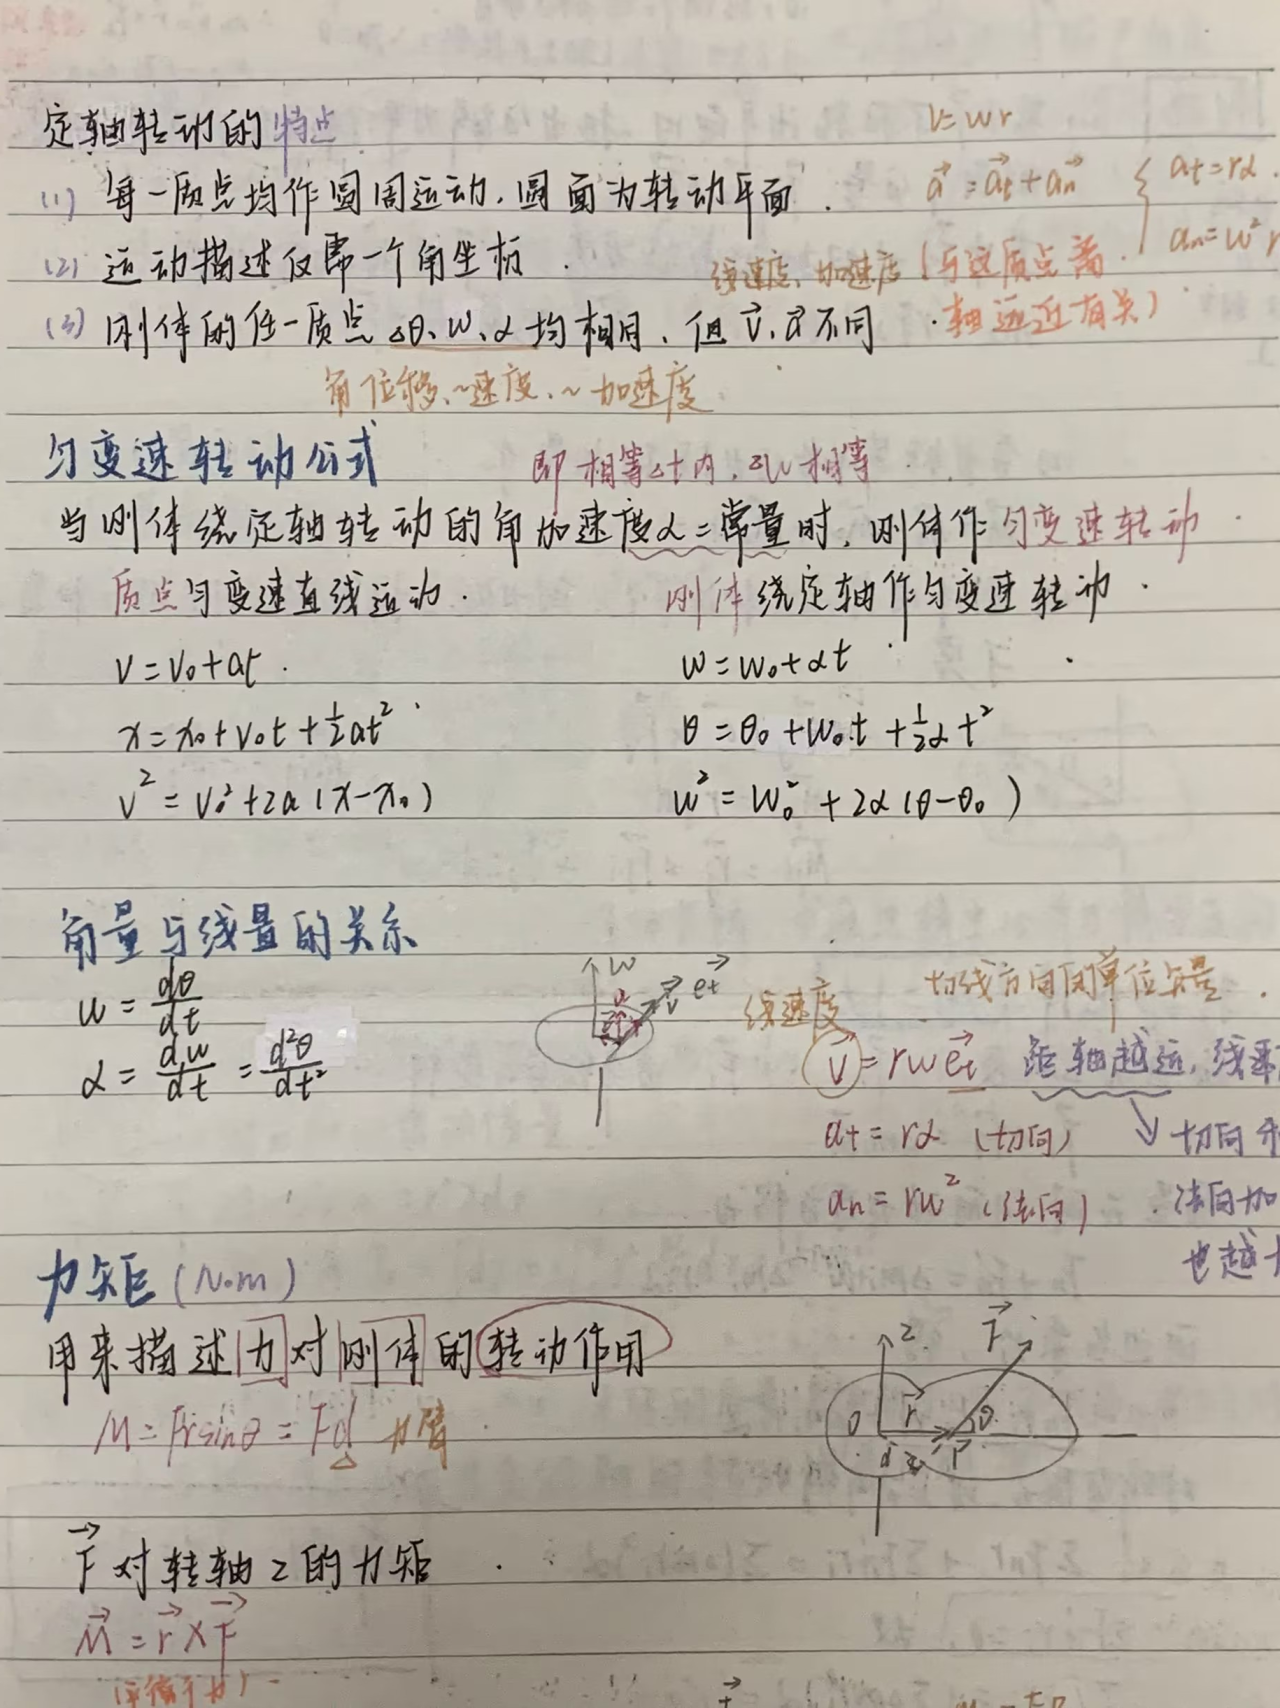 定轴转动的特点
v=wr
(1) 每一质点均作圆周运动,圆面为转动平面.
a⃗=a⃗t+a⃗n { at=rα. an=w²r
(2) 运动描述仅需一个角坐标.
线速度、加速度(与这质点离轴远近有关)
(3) 刚体的任一质点Δθ、w、α均相同,但v⃗、a⃗不同.
角位移、~速度、~加速度
匀变速转动公式
即相等Δt内,Δw相等
当刚体绕定轴转动的角加速度α=常量时,刚体作匀变速转动.
质点匀变速直线运动.
刚体绕定轴作匀变速转动.
v=v₀+at.
w=w₀+αt
x=x₀+v₀t+½at²
θ=θ₀+w₀t+½αt²
v²=v₀²+2a(x-x₀)
w²=w₀²+2α(θ-θ₀)
角量与线量的关系
w=dθ/dt
α=dw/dt=d²θ/dt²
w
v⃗
e⃗t
线速度
切线方向的单位矢量.
v⃗=rwe⃗t
距轴越远,线率
at=rα (切向)
切向
an=rw² (法向)
法向加
也越
力矩(N·m)
用来描述力对刚体的转动作用
M=Frsinθ=Fd 力臂
z
F⃗
O
r⃗
θ
d
P
F⃗对转轴z的力矩.
M⃗=r⃗×F⃗